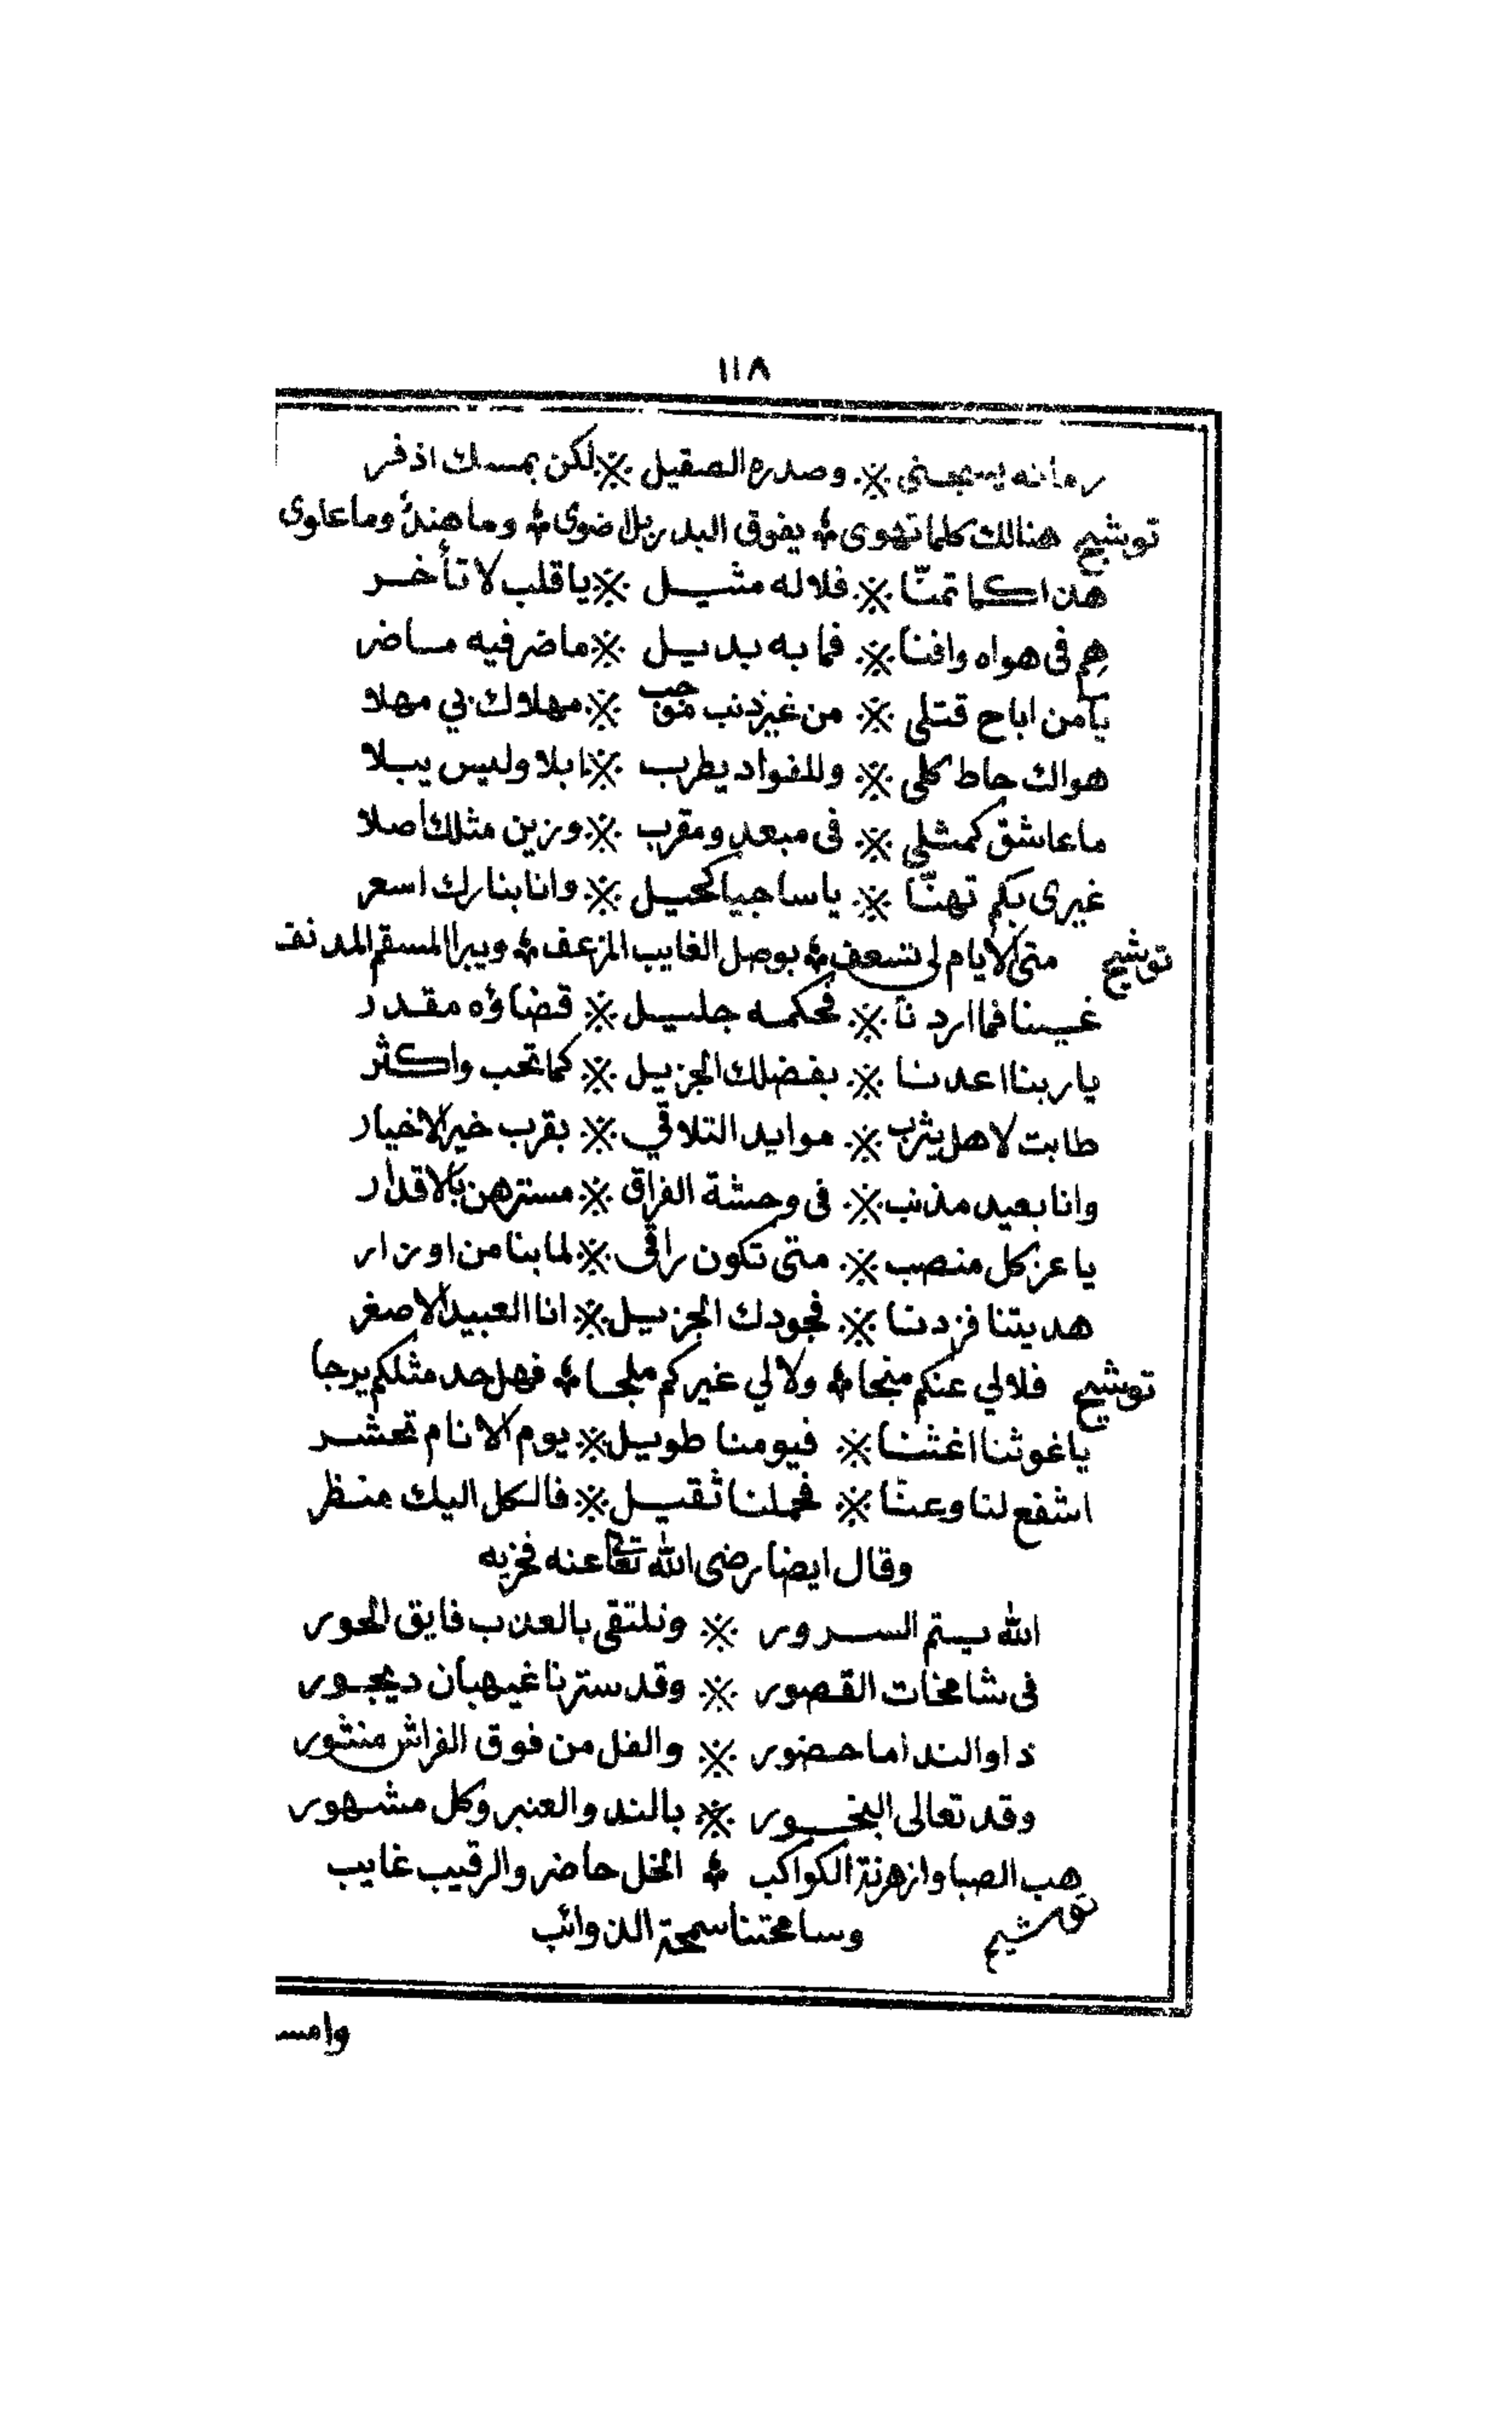 ١١٨
رمانه يستجنى ※ وصدره الصقيل ※ لكن بمسك اذفر
توشيح هنالك كلما تهوى ؞ يفوق البدر بل ضوى ؞ وما هند وما علوى
هذا كما تمنّا ※ فلا له مثيل ※ يا قلب لا تأخر
هم فى هواه وافنا ※ فما به بديل ※ ما ضر فيه ما ضر
يا من اباح قتلى ※ من غير ذنب موجب ※ مهلا وك بي مهلا
هواك حاط كلى ※ وللفواد يطرب ※ ابلا وليس يبلا
ما عاشق كمثلي ※ فى مبعد ومقرب ※ وزين مثلك اصلا
غيرى بكم تهنّا ※ يا ساجيا كحيل ※ وانا بنارك اسعر
توشيح متى الايام لى تسعف ؞ بوصل الغايب المزعف ؞ ويبرا المسقم المدنف
غبنا فما اردنا ※ فحكمه جليل ※ قضاؤه مقدر
يا ربنا اعدنا ※ بفضلك الجزيل ※ كما تحب واكثر
طابت لاهل يثرب ※ موايد التلاقي ※ بقرب خير الاخيار
وانا بعيد مذنب ※ فى وحشة الفراق ※ مسترهن بالاقدار
يا عز كل منصب ※ متى تكون راقى ※ لما بنا من اوزار
هديتنا فزدنا ※ فجودك الجزيل ※ انا العبيد الاصغر
توشيح فلا لي عنكم منجا ؞ ولا لي غيركم ملجا ؞ فهل حد مثلكم يرجا
يا غوثنا اغثنا ※ فيومنا طويل ※ يوم الانام تحشر
اشفع لنا وعنّا ※ فحملنا ثقيل ※ فالكل اليك منظر
وقال ايضا رضى الله تعالى عنه فخريه
الله يتم السرور ※ ونلتقى بالعذب فايق الحور
فى شامخات القصور ※ وقد سترنا غيهبان ديجور
ذا والندا ما حضور ※ والفل من فوق الفراش منثور
وقد تعالى البخور ※ بالند والعنبر وكل مشهور
هب الصبا وازهرنة الكواكب ؞ الخل حاضر والرقيب غايب
توشيح وسامحتنا سمحة الذوائب
وامس